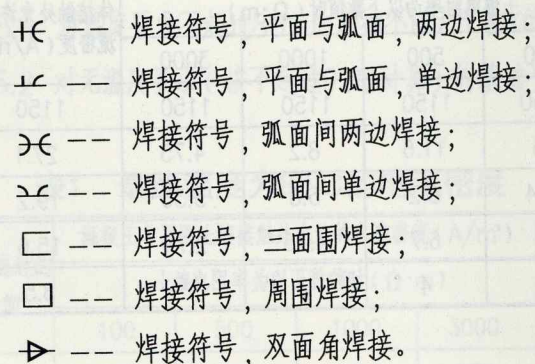 焊接符号，平面与弧面，两边焊接；
焊接符号，平面与弧面，单边焊接；
—— 焊接符号，弧面间两边焊接；
—— 焊接符号，弧面间单边焊接；
—— 焊接符号，三面围焊接；
—— 焊接符号，周围焊接；
—— 焊接符号，双面角焊接。